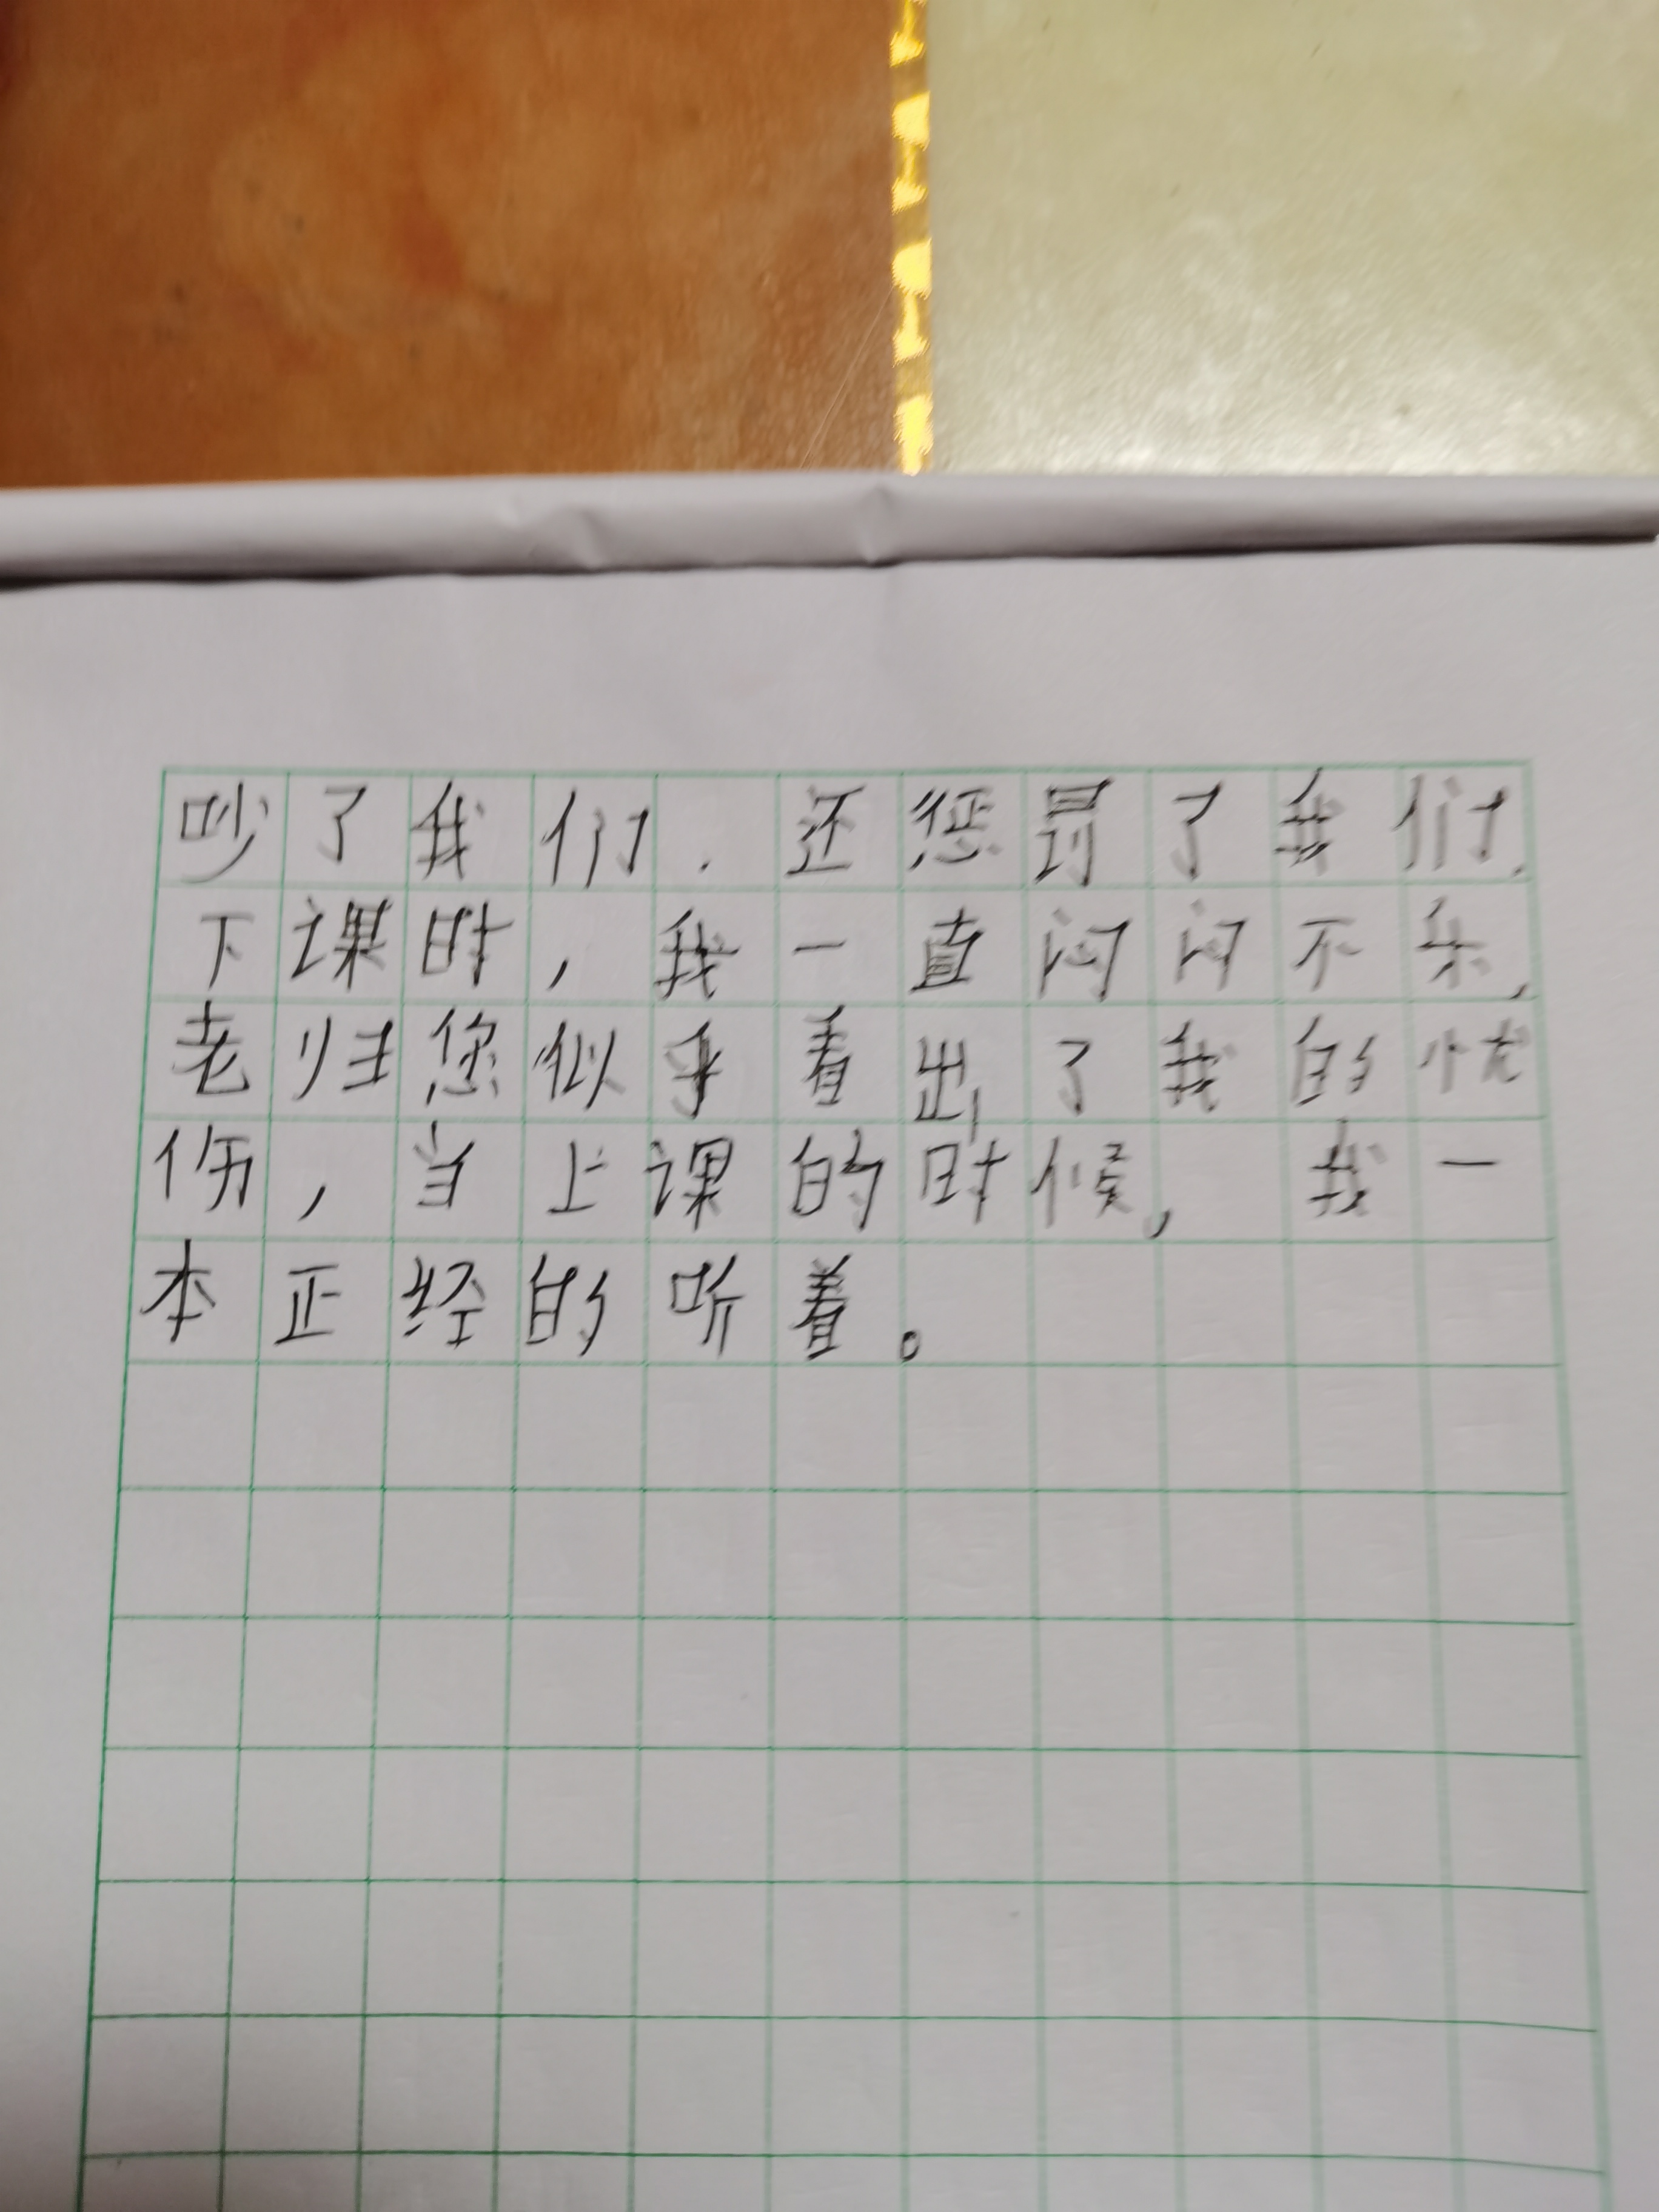 吵了我们.还惩罚了我们.
下课时，我一直闷闷不乐,
老归您似乎看出了我的忧
伤，当上课的时候，我一
本正经的听着。